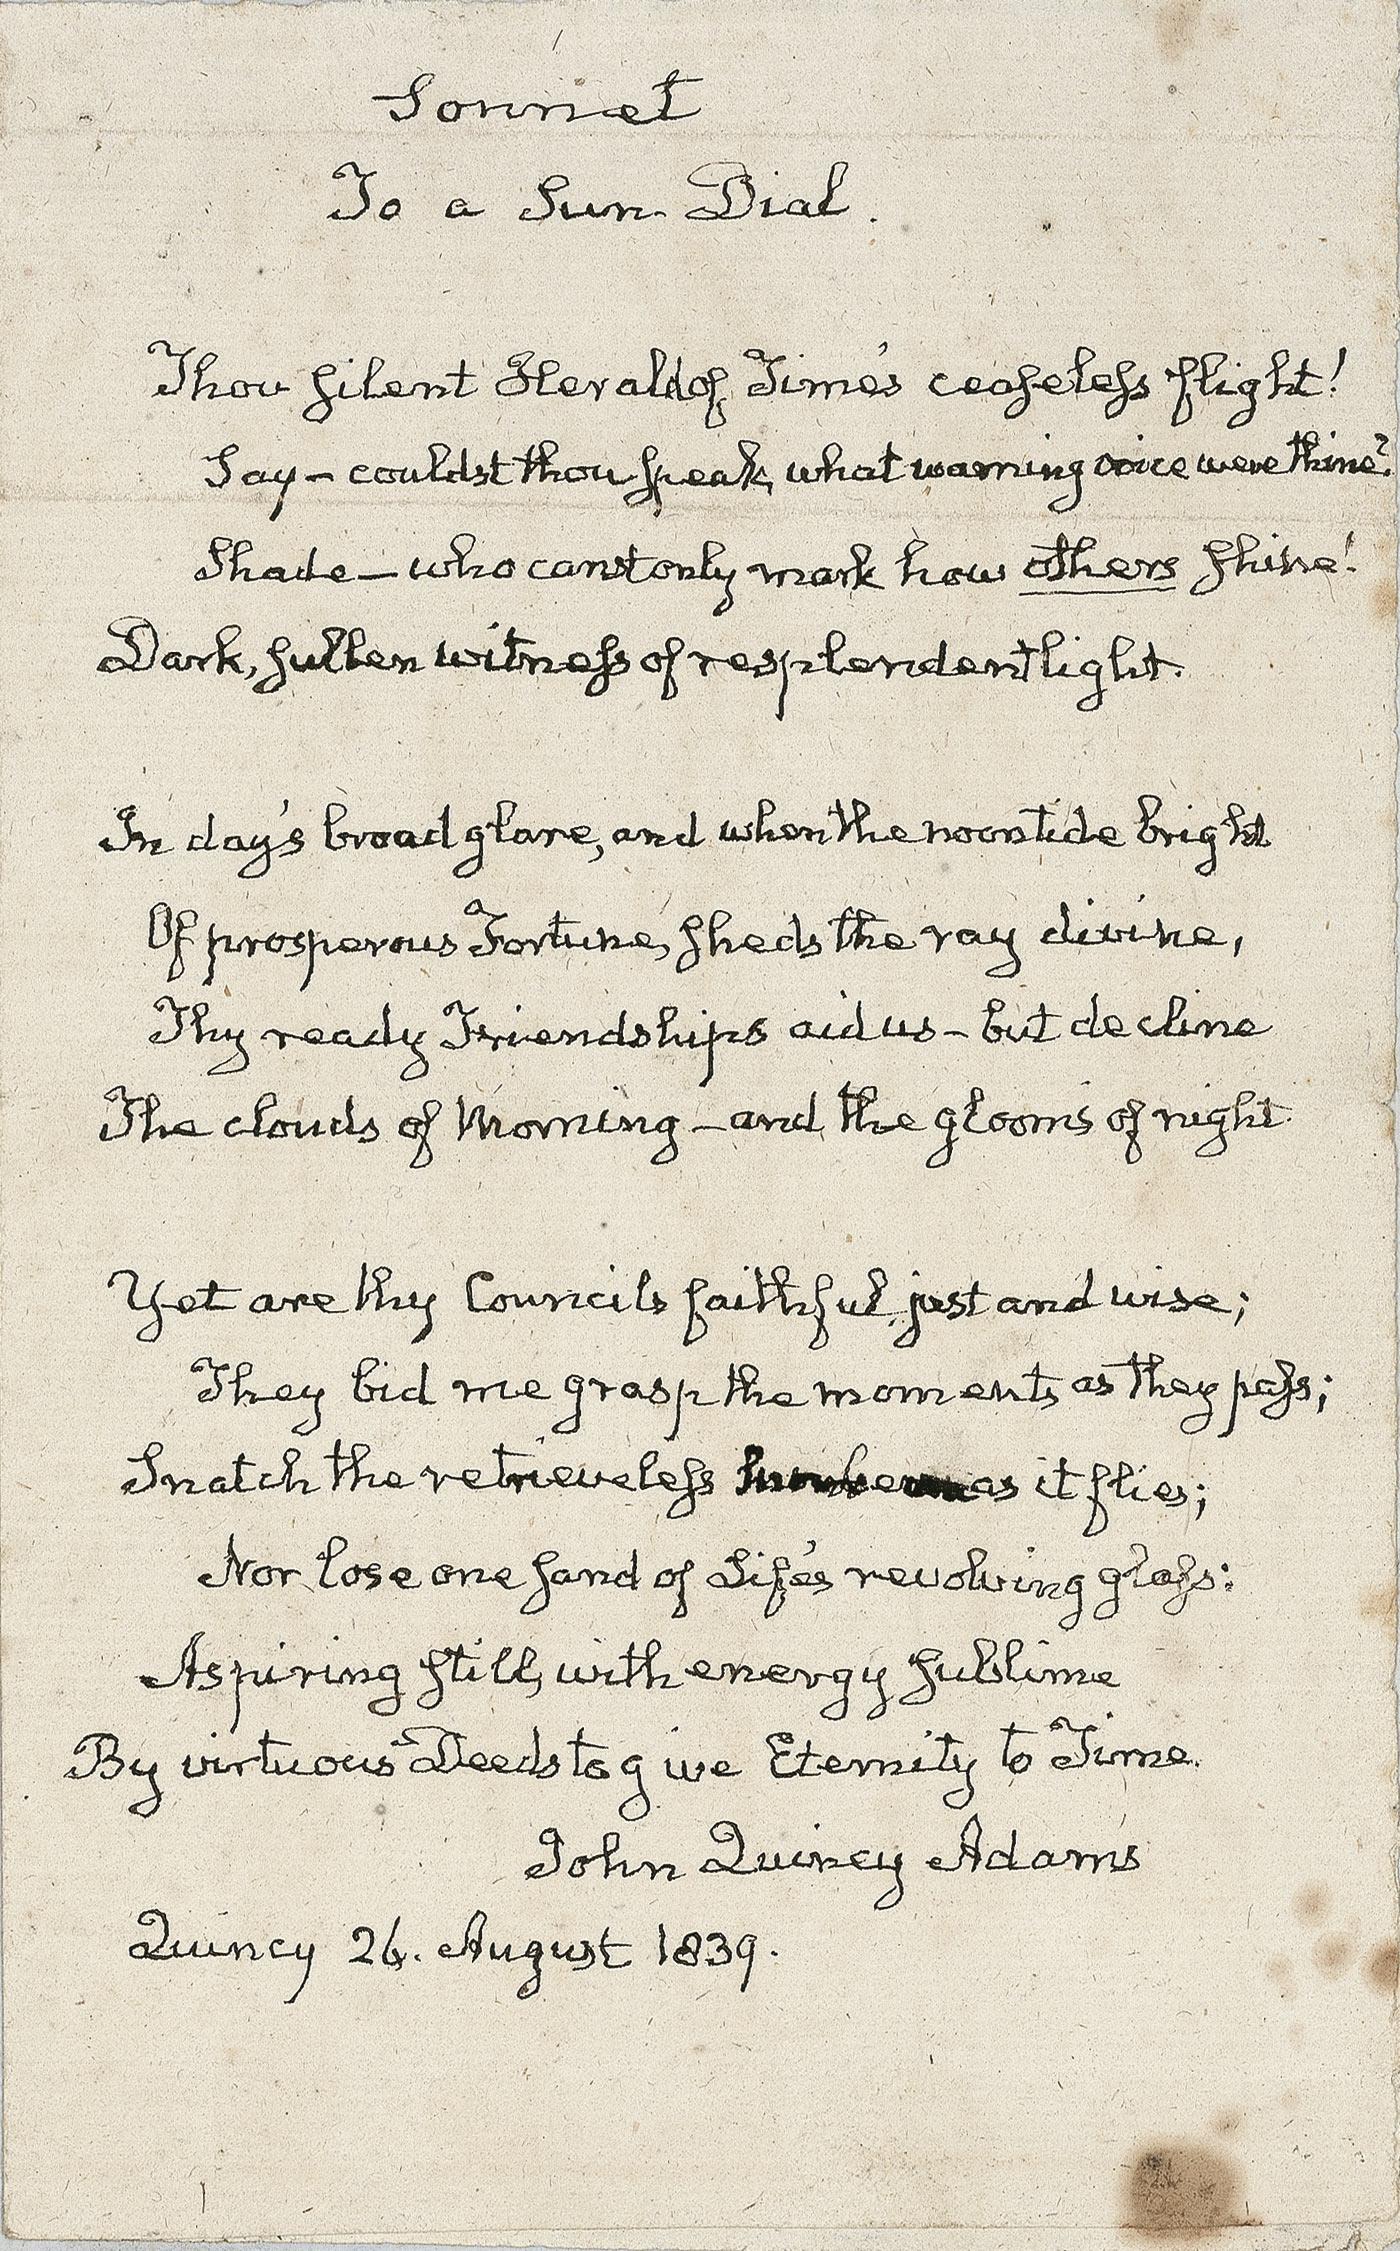 Sonnet
To a Sun-Dial.
Thou silent Herald of Time's ceaseless flight!
Say – couldst thou speak, what warning voice were thine?
Shade – who canst only mark how others shine!
Dark, sullen witness of resplendent light.
In day's broad glare, and when the noontide bright
Of prosperous Fortune, sheds the ray divine,
Thy ready Friendships aid us – but decline
The clouds of Morning – and the glooms of night.
Yet are thy Councils faithful, just and wise;
They bid me grasp the moments as they pass;
Snatch the retrieveless as it flies;
Nor lose one sand of Life's revolving glass:
Aspiring still, with energy sublime
By virtuous Deeds to give Eternity to Time.
John Quincy Adams
Quincy 26. August 1839.